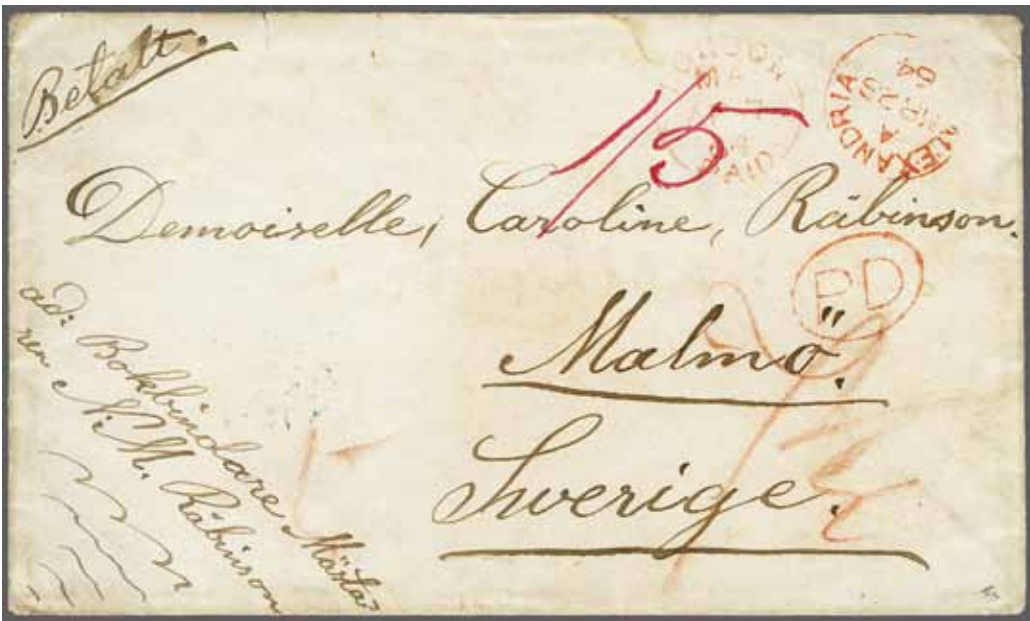 Betalt.
1/5
LONDON
PAID
ALEXANDRIA
A
64
Demoiselle, Caroline, Räbinson.
PD
Malmö.
Sverige.
ad: Bokbindare Mästa
ren N. M. Räbinson